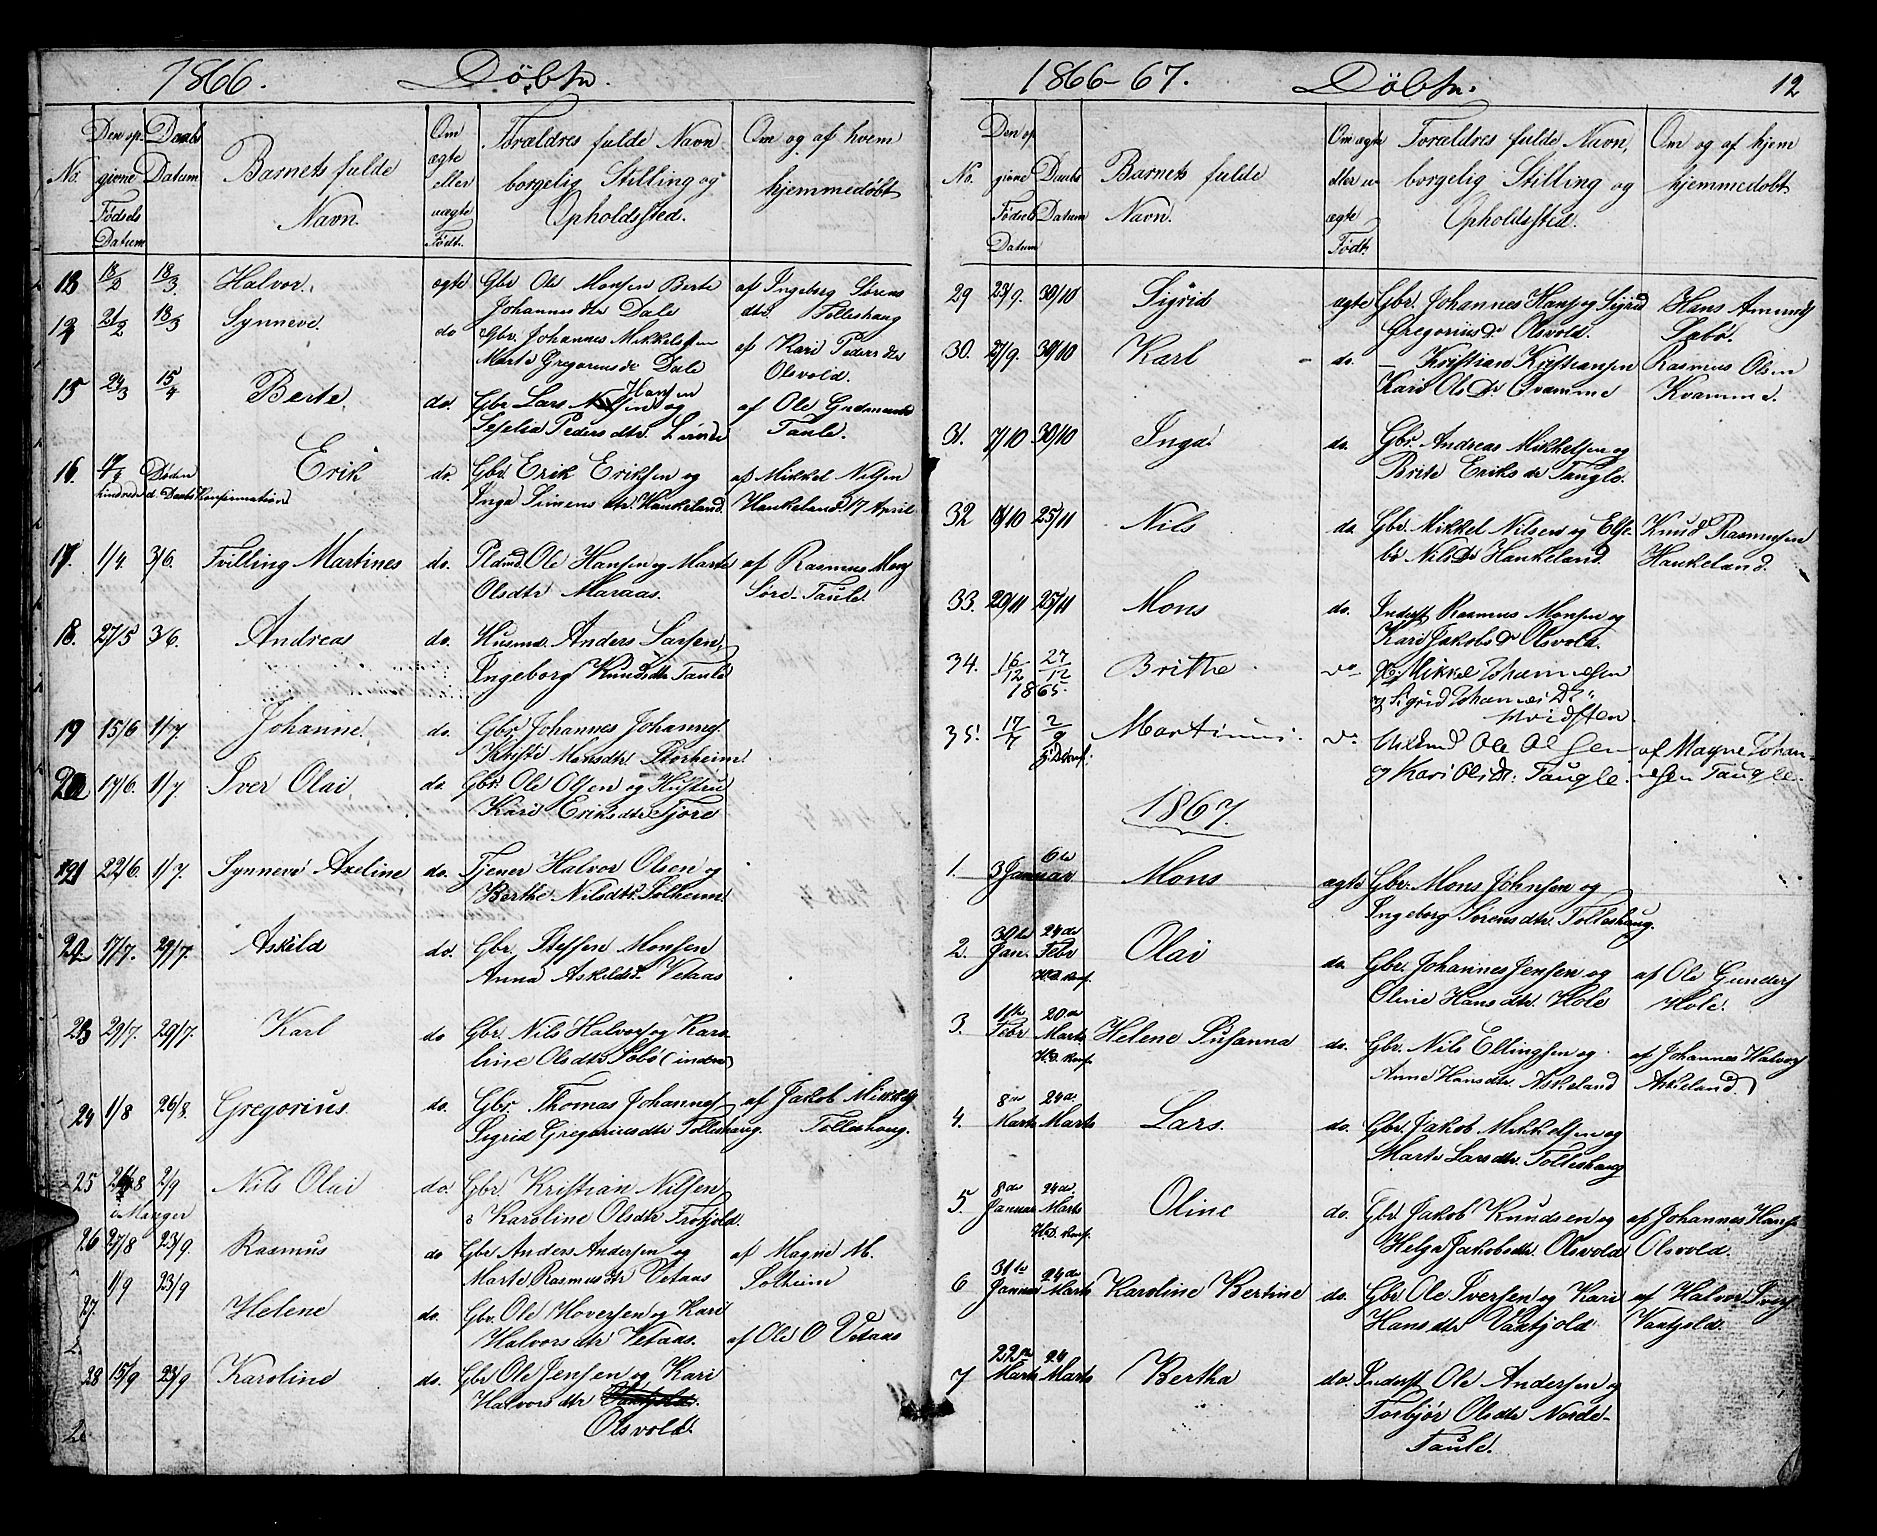 1866. Döbte.
No.
Den op-
givne
Födsels
Datum
Daabs
Datum
Barnets fulde
Navn.
Om
ægte
eller
uægte
Födt.
Forældres fulde Navn
borgelig Stilling og
Opholdssted.
Om og af hvem
hjemmedøbt
13 18/2 18/3. Halvor. ægte Gbr Ole Monsen Berte af Ingeborg Sörens
Johannesdtr Dale dtr. Tolleshaug
14 21/2 18/3 Synneve. do Gbr. Johannes Mikkelsen af Kari Peders dtr
Marte Gregoriusdr Dale Olsvold.
15 24/3 15/4 Berte. do. Gbr Lars Hansen og af Ole Gudmunds
Peders dtr. Taule.
16. Döden Erik do. Gbr. Erik Eriksen og af Mikkel Nilsen
hindrede d. Daabs Konfirmation Inga Simens dtr. Haukeland. Haukeland 17 April
17. 1/4. 3/6. Tvilling Martines do. Pldmd. Ole Hansen og Marte af Rasmus Mons
Olsdtr Maraas. Söre-Taule.
18. 27/5 3/6. Andreas do. Husmd. Anders Larsen,
Ingeborg Knudsdtr Taule
19 15/6 1/7. Johanne. do. Gbr. Johannes Johannes
Monsdtr Storheim
20 17/6. 1/7. Iver Olai do. Gbr. Ole Olsen og Hustru
Kari Eriksdtr Fjöre
21 22/6 1/7. Synneve Axeline do. Tjener Halvor Olsen og
Berthe Nilsdtr. Solheim
22 17/7. 29/7. Askild do. Gbr. Steffen Monsen
Anna Askildsd. Vetaas
23 29/7. 29/7. Karl do Gbr. Nils Halvors og Karo-
line Olsdtr. Söbö (indre)
24 1/8 26/8. Gregorius. do. Gbr. Thomas Johannes af Jakob Mikkels
Sigrid Gregoriusdtr Tolleshaug. Tolleshaug.
25 2/9 Nils Olai do. Gbr. Kristian Nilsen
i Manger & Karoline Olsdtr Frotjold.
26 27/8 23/9. Rasmus do Gbr Anders Andersen og af Magne M.
Marte Rasmusdtr Vetaas Solheim
27. 1/9 23/9 Helene do. Gbr. Ole Hoversen og Kari
Halvors dtr Vetaas. af Ole O Vetaas
28 15/9 23/9 Karoline do. Gbr Ole Jensen og Kari
Halvors dtr
Olsvold.
1866-67. Döbte. 12
No.
Den op
givne
Födsels
Datum
Daabs
Datum
Barnets fulde
Navn.
Om ægte
eller u-
ægte
Födt.
Forældres fulde Navn,
borgelig Stilling og
Opholdssted.
Om og af hjem
hjemmedobt
29 23/9. 30/10 Sigrid ægte Gbr. Johannes Hans og Sigrid Hans Amunds
Gregorius Dr Olsvold. Söbö.
30. 2/9. 30/10 Karl do. Kristian Kristiansen Rasmus Olsen
Kari Ols Dr Qvamme Kvamme.
31. 7/10 30/10 Inga. do. Gbr. Andreas Mikkelsen og
Brite Eriks dr Taugle.
32 18/10 25/11 Nils do Gbr. Mikkel Nilsen og Else- Knud Rasmusen
bö NilsDr Haukeland. Haukeland.
33. 20/11 25/11 Mons do. Inderst Rasmus Monsen og
Kari Jakobs Dr Olsvold.
34. 16/12 27/12 Brithe. do Gbr. Mikkel Johannesen
1865. og Sigrid Johannes Dr.
35. 17/7 2/9 Martinus. do Ole Olsen af Magne Johan-
og Kari Olsdr: Taugle. nesen Taugle.
1867.
1. 3 Januar 6te Mons ægte Gbr. Mons Johnsen og
Ingeborg Sörensdtr. Tolleshaug.
2. 30te Jan. 24de Febr Olai do. Gbr. Johannes Jensen og af Ole Gunders
H.D. Konf. Oline Hansdtr. Hole Hole.
3. Febr 20de Marts Helene Susanna do. Gbr. Nils Ellingsen og af Johannes Halvors
H.D. Konf. Anne Hansdtr Askeland Askeland
4. 8de Marts 24de Marts Lars. do. Gbr. Jakob Mikkelsen og
Marte Larsdtr. Tolleshaug
5. 8de Januar 24de Marts Oline do. Gbr. Jakob Knudsen og af Johannes Hans
H.D. Konf. Helga Jakobsdtr Olsvold Olsvold.
6 31te Januar 24de Marts Karoline Bertine do. Gbr Ole Iversen og Kari af Halvor Ivers
Hans dtr Vantjold. Vantjold.
7 Marts 24 Marts Bertha do. Inderst Ole Andersen og
Torbjör Olsdtr Nordre-
Taule.